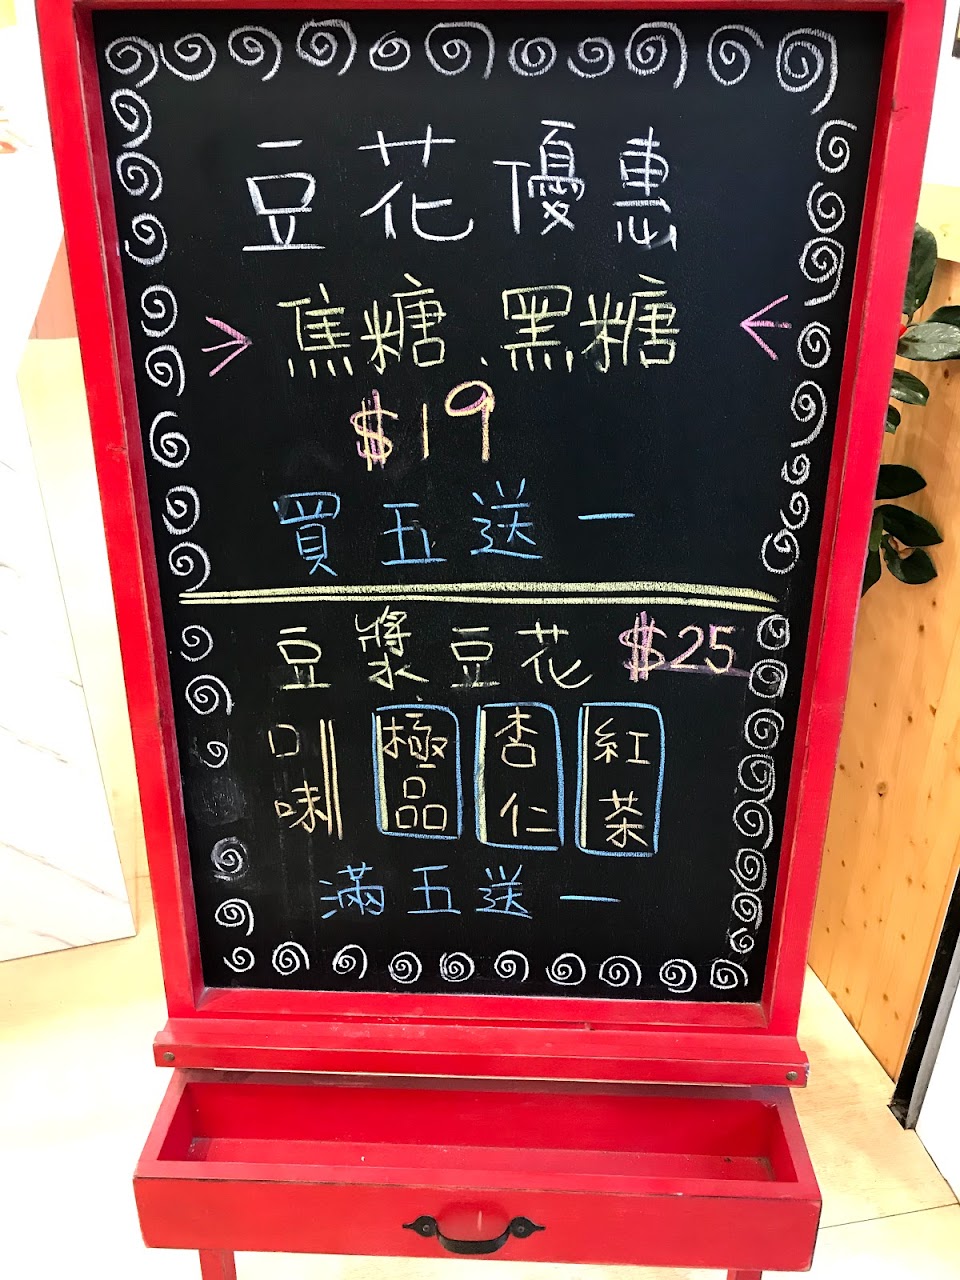 豆花優惠
焦糖、黑糖
$19
買五送一
豆漿豆花 $25
口味 極品 杏仁 紅茶
滿五送一